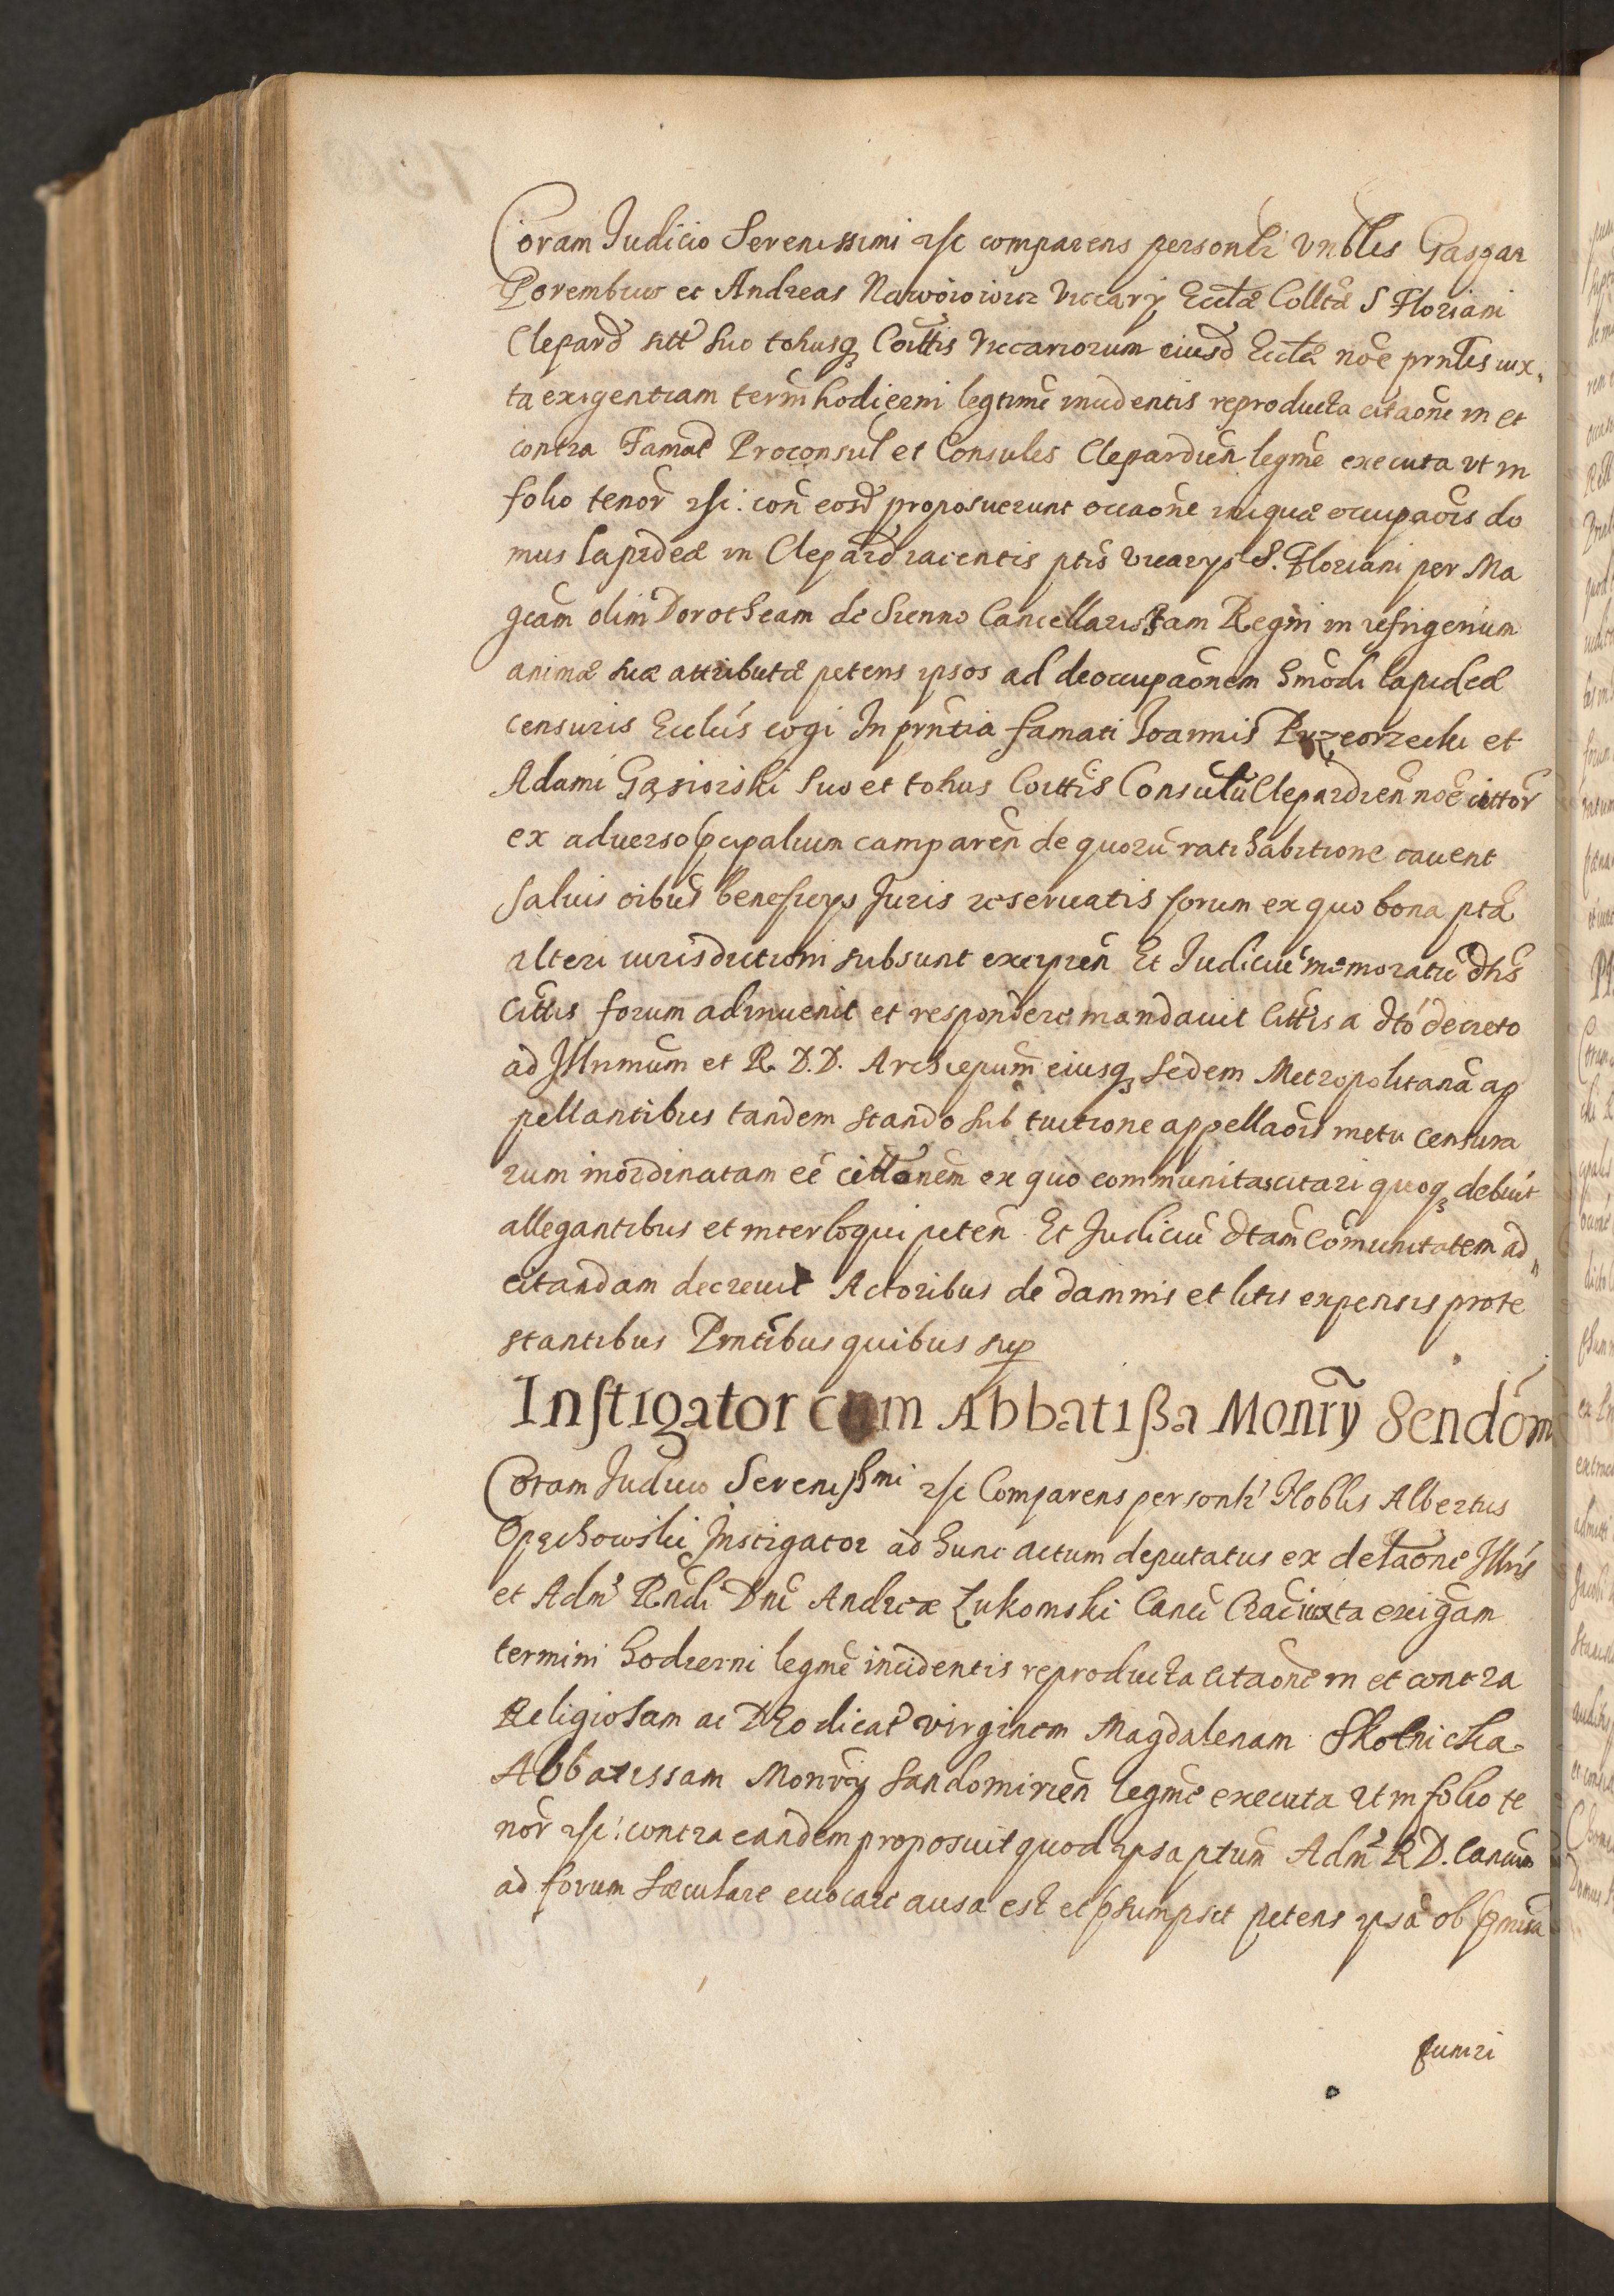 Coram Judicio Serenissimi etc comparens personlr Vnbles Gaspar
Porembius et Andreas Nawoiowicz Viccarÿ Ecclæ Colltæ S Floriani
Clepard sitt suo totiusq Coittis Viccariorum eiusd Eccle noe prntis iux,
ta exigentiam termi hodierni legtime incidentis reproducta citaone in et
contra Famat Proconsul et Consules Clepardien legme executa vt in
folio tenor etc: con eosd proposuerunt occaone iniquæ occupaois do
mus lapideæ in Clepard iacentis ptis vicarys S. Floriani per Ma
gcam olim Dorotheam de Sienno Cancellarissam Regni in refrigerium
animæ suæ attributæ petens ipsos ad deoccupaonem hmodi lapideæ
censuris Ecclis cogi In prntia famati Joannis et
Adami Gąsiorski suo et totius Coittis Consulu Clepardien noe cittor
ex adverso pcipalium camparen de quoru ratihabitione cavent
salvis oibus beneficys Juris reservatis forum ex quo bona pta
alteri iurisdictioni subsunt excipien Et Judiciu memoratu dhs
Cittis forum adinvenit et respondere mandavit Cittis a dto decreto
ad Jllrmum et R. D.D. Archiepum eiusq sedem Metropolitana ap
pellantibus tandem stando sub tuitione appellaois metu censura
rum inordinatam ee cittaonem ex quo communitas citari quoq debuit
allegantibus et interloqui peten Et Judiciu dtam Comunitatem ad„
citandam decrevit Actoribus de damnis et litis expensis prote
stantibus Prntibus quibus sup
Instigator cum Abbatißa Monrÿ Sendom
Coram Judicio Sereniss̄mi etc Comparens personlr Noblis Albertus
Opęchowski Instigator ad hunc actum deputatus ex delaone Jllris
et Adm Rndi Dni Andreæ Łukomski Canci Crac iuxta exigam
termini hodierni legme incidentis reproducta citaone in et contra
Religiosam ac DEodicat virginem Magdalenam Skotnicka
Abbatissam Monrÿ Sandomirien legme executa ut in folio te
nor etc: contra eandem proposuit quod ipsa ptum Adm RD. Cancum
ad forum sæculare evocare ausa est et psumpsit petens ipsa ob pmissa
puniri